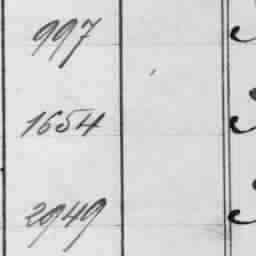 997
1654
2949